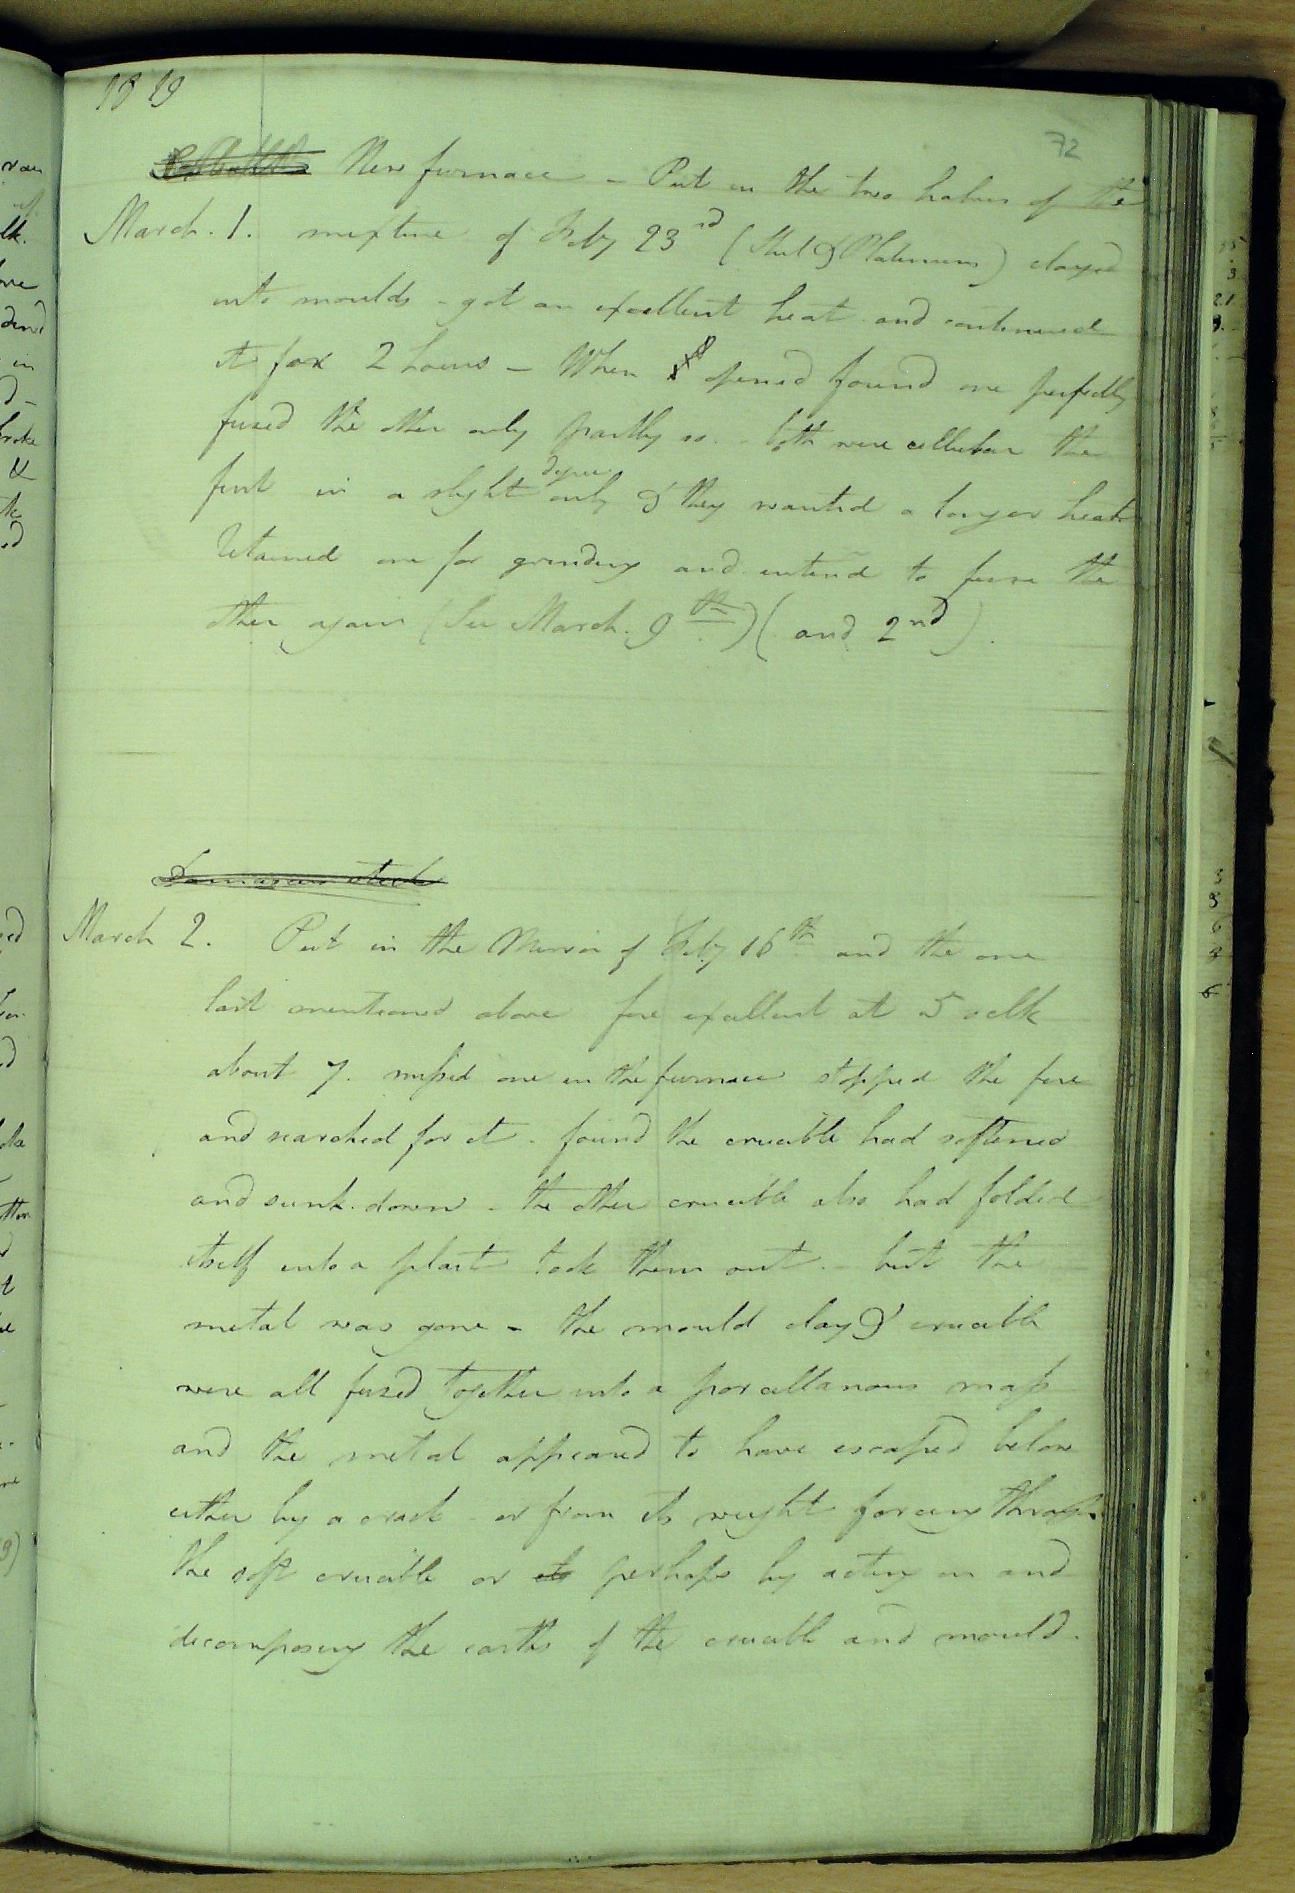 1819
72
New furnace - Put in the two halves of the
March. 1. mixture of Feby 23rd (Steel & Platinum) clayed
into moulds - got an excellent heat and continued
it for 2 hours - When opened found one perfectly
fused the other only partly so. - both were cellular the
first in a slight degree only & they wanted a longer heat
Retained one for grinding and intend to fuse the
other again (See March. 9th) (and 2nd).
Damascus steel
March 2. Put in the Mirror of Feby 16th and the one
last mentioned above fire excellent at 5 oclk
about 7. missed one in the furnace stopped the fire
and searched for it - found the crucible had softened
and sunk down - the other crucible also had folded
itself into a plait took them out. - but the
metal was gone - the mould clay & crucible
were all fused together into a porcellanous mass
and the metal appeared to have escaped below
either by a crack - or from its weight forcing through
the soft crucible or its perhaps by acting on and
decomposing the earths of the crucible and mould.